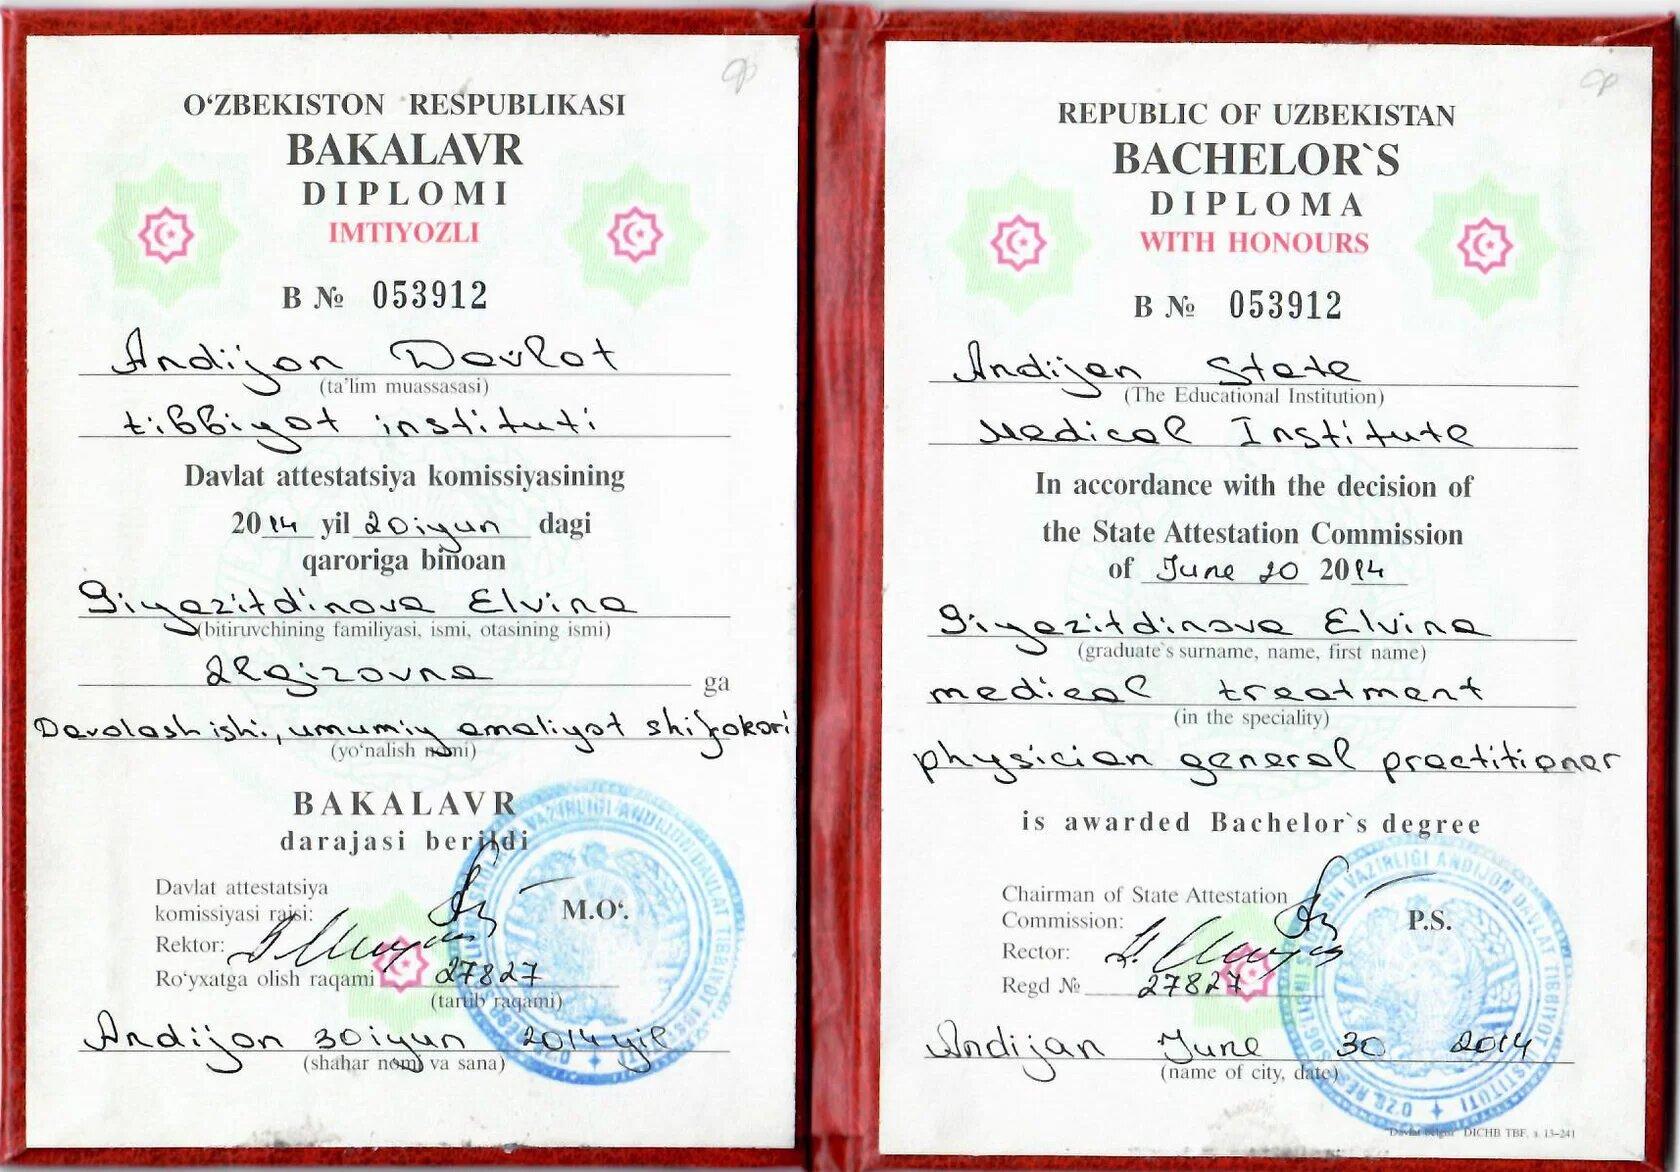 O‘ZBEKISTON RESPUBLIKASI
BAKALAVR
DIPLOMI
IMTIYOZLI
B № 053912
Andijon Davlat
(ta’lim muassasasi)
tibbiyot instituti
Davlat attestatsiya komissiyasining
2014 yil 20 iyun dagi
qaroriga binoan
Giyazitdinova Elvina
(bitiruvchining familiyasi, ismi, otasining ismi)
Ilgizovna ga
Davolash ishi, umumiy amaliyot shifokori
(yo‘nalish nomi)
BAKALAVR
darajasi berildi
Davlat attestatsiya
komissiyasi raisi:
M.O‘.
Rektor:
Ro‘yxatga olish raqami 27827
(tartib raqami)
Andijon 30 iyun 2014 yil
(shahar nomi va sana)
REPUBLIC OF UZBEKISTAN
BACHELOR`S
DIPLOMA
WITH HONOURS
B № 053912
Andijan State
(The Educational Institution)
Medical Institute
In accordance with the decision of
the State Attestation Commission
of June 20 2014
Giyazitdinova Elvina
(graduate`s surname, name, first name)
medical treatment
(in the speciality)
physician general practitioner
is awarded Bachelor`s degree
Chairman of State Attestation
Commission:
P.S.
Rector:
Regd № 27827
Andijan June 30 2014
(name of city, date)
"Davlat belgisi" DICHB TBF, z. 13–241